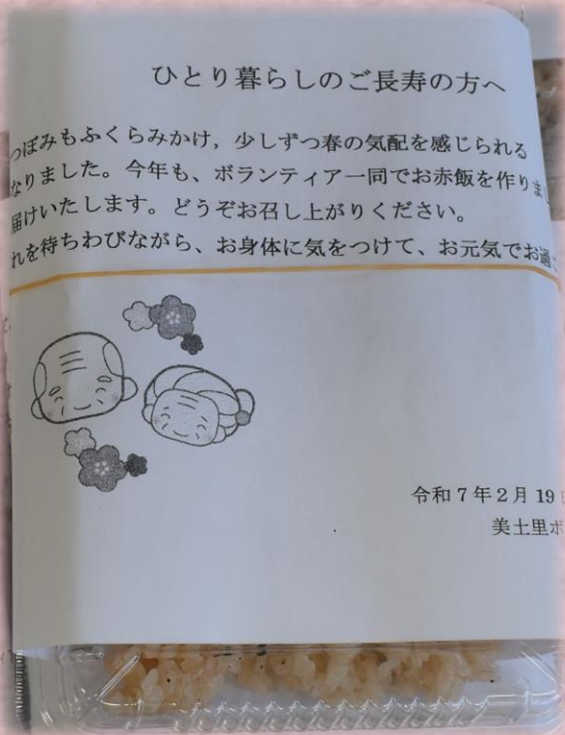 ひとり暮らしのご長寿の方へ
つぼみもふくらみかけ，少しずつ春の気配を感じられる
なりました。今年も、ボランティア一同でお赤飯を作りま
届けいたします。どうぞお召し上がりください。
れを待ちわびながら、お身体に気をつけて、お元気でお過
令和7年2月19
美土里ボ